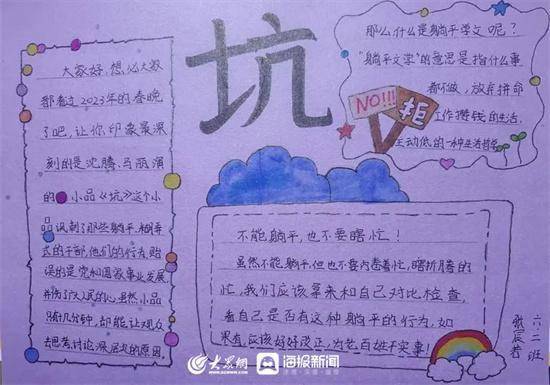 坑
大家好,想必大家
都看过2023年的春晚
了吧,让你印象最深
刻的是沈腾、马丽演
的小品《坑》这个小
品讽刺了那些躺平、相
式的干部,他们的行为贻
误的是党和国家事业发展,
伤了人民的心。虽然小品
只有几分钟,却能让观众
去思考,讨论深层次的原因。
那么什么是躺平学文呢?
"躺平文学"的意思是指什么事
都不做,放弃拼命
工作攒钱的生活,
主动低的一种生活哲学
NO!!!
拒
不能躺平,也不要瞎忙!
虽然不能躺平,但也不要内卷着忙,瞎折腾的
忙,我们应该拿来和自己对比检查,
看自己是否有这种躺平的行为,如
果有,应该好好改正,为老百姓干实事!
六.二班
大众网
海报新闻